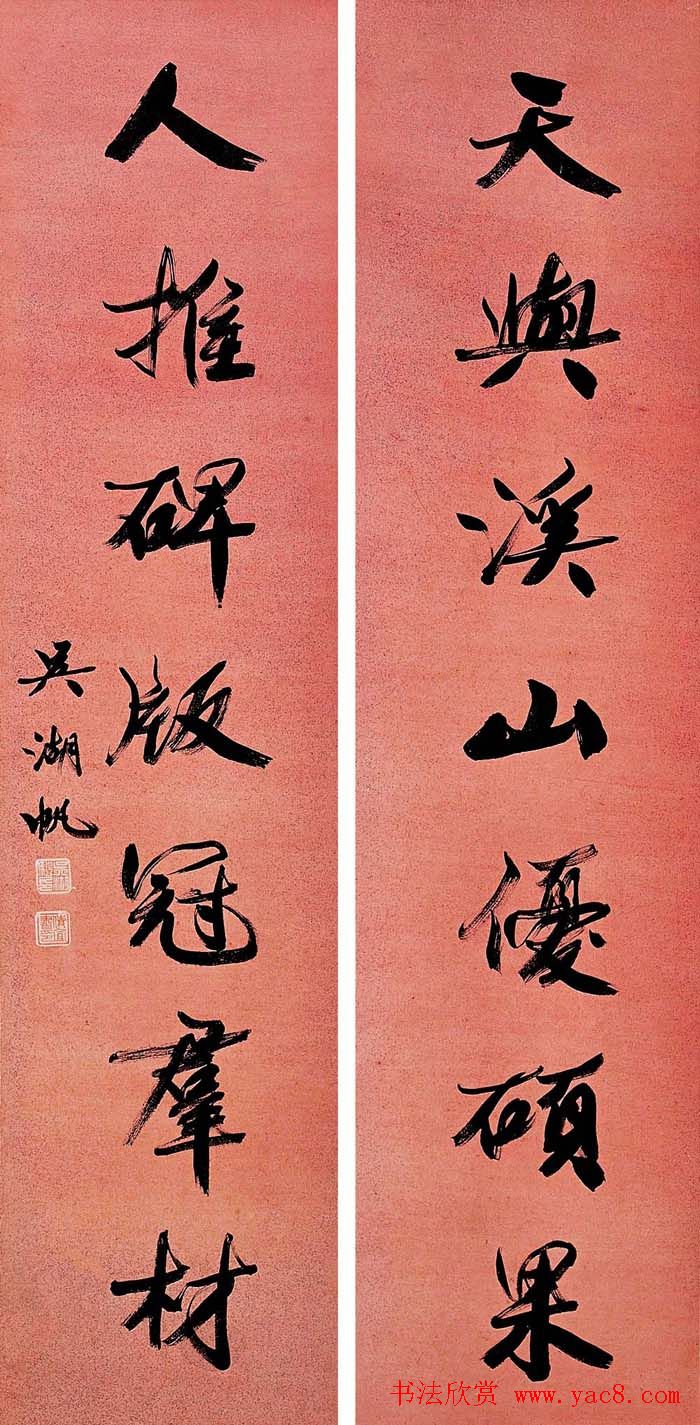 天與溪山優碩果
人推碑版冠羣材
吳湖帆
书法欣赏 www.yac8.com